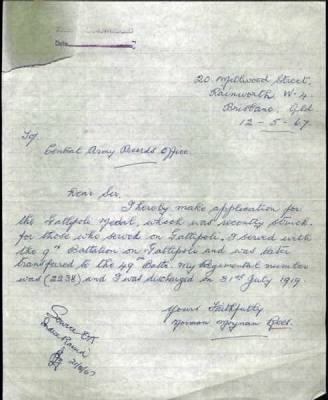 20 Millwood Street,
Rainworth W.4.
Brisbane, Qld
12-5-67
To/
Central Army Records Office.
Dear Sir.
I hereby make application for
the Gallipoli Medal, which was recently struck
for those who served on Gallipoli. I served with
the 9th Battalion on Gallipoli and was later
transfered to the 49 Battn. My Regimental number
was (2238) and I was discharged on 31st July 1919.
Yours Faithfully
Norman
Service
21/6/67